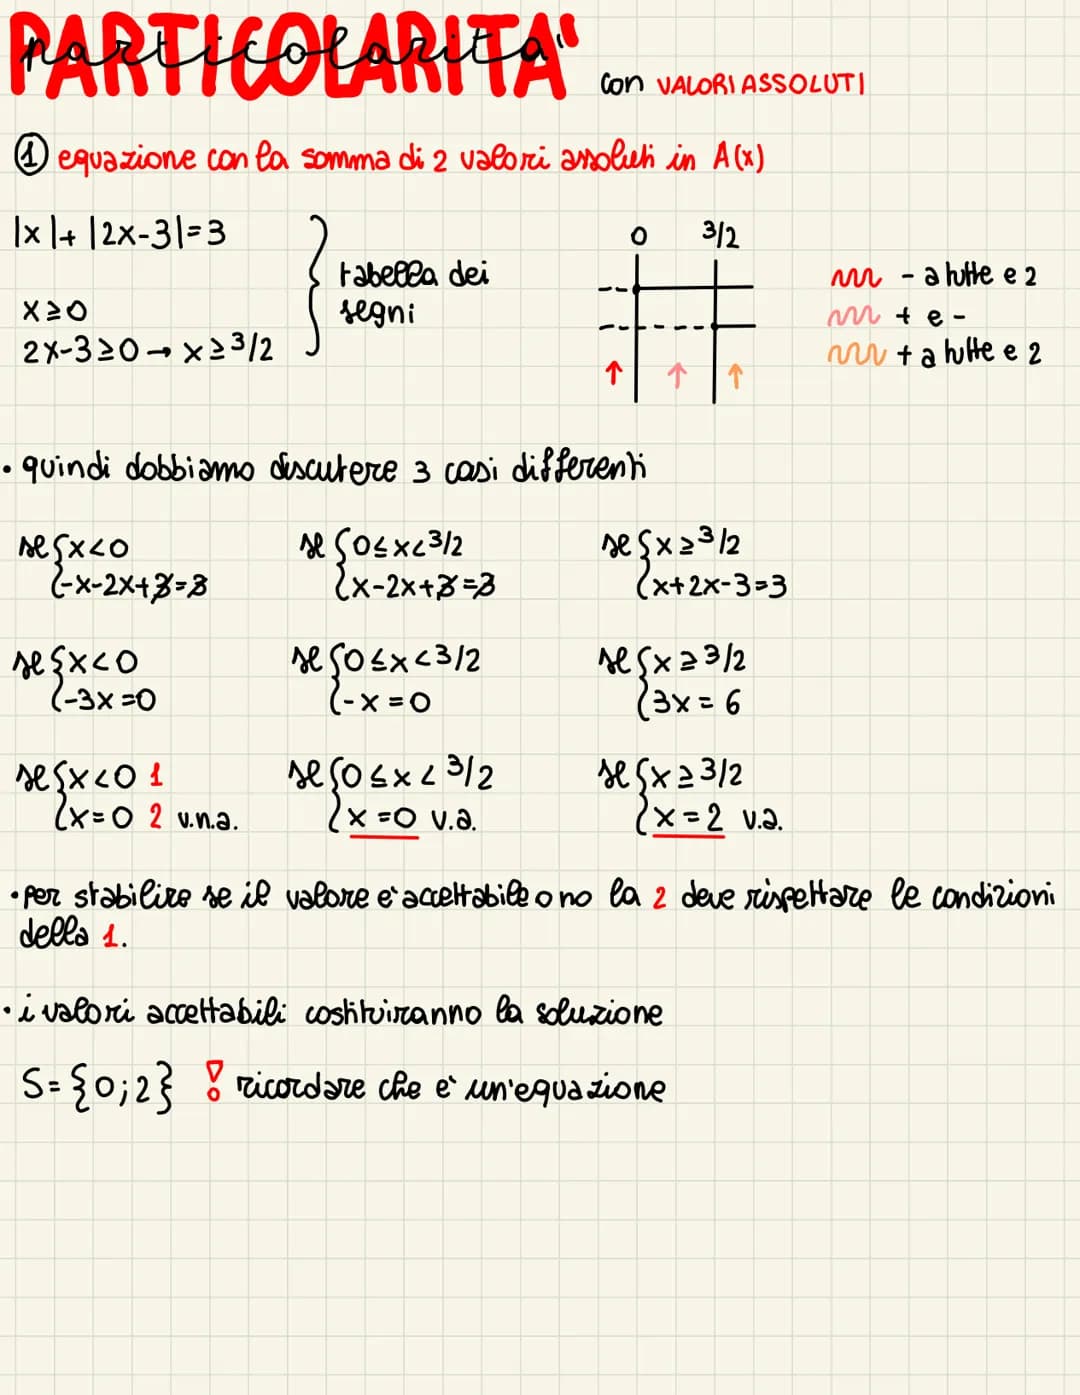 PARTICOLARITA'
particolarità
con VALORI ASSOLUTI
① equazione con la somma di 2 valori assoluti in A(x)
|x|+|2x-3|=3
x≥0
2x-3≥0→x≥3/2
tabella dei
segni
0 3/2
- a tutte e 2
+ e -
+ a tutte e 2
• quindi dobbiamo discutere 3 casi differenti
se {x<0
{-x-2x+3=3
se {0≤x<3/2
{x-2x+3=3
se {x≥3/2
{x+2x-3=3
se {x<0
{-3x=0
se {0≤x<3/2
{-x=0
se {x≥3/2
{3x=6
se {x<0 1
{x=0 2 v.n.a.
se {0≤x<3/2
{x=0 v.a.
se {x≥3/2
{x=2 v.a.
• per stabilire se il valore e' accettabile o no la 2 deve rispettare le condizioni
della 1.
• i valori accettabili costituiranno la soluzione
S={0;2} ! ricordare che e' un'equazione